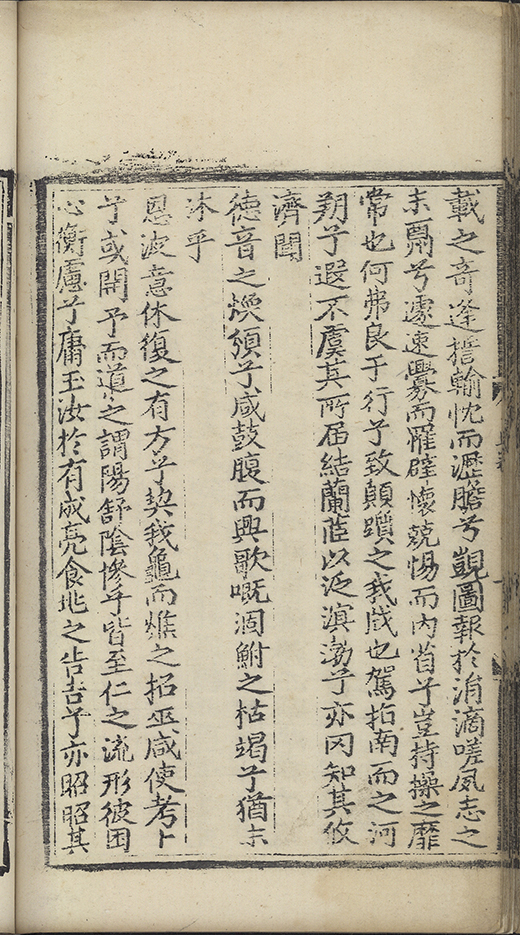 載之奇逢誓輸忱而瀝膽兮覬圖報於涓滴嗟夙志之
未鬯兮遽速釁而罹辟懷兢惕而內省兮豈持操之靡
常也何弗良于行兮致顛躓之我戕也駕指南而之河
朔兮遐不虞其所届結蘭茝以泛滇渤兮亦罔知其攸
濟聞
德音之煥頒兮咸鼓腹而興歌嘅涸鮒之枯竭兮猶未
沐乎
恩波意休復之有方兮契我龜而燋之招巫咸使考卜
兮或開予而道之謂陽舒陰慘兮皆至仁之流形彼困
心衡慮兮庸玉汝於有成亮食兆之告吉兮亦昭昭其